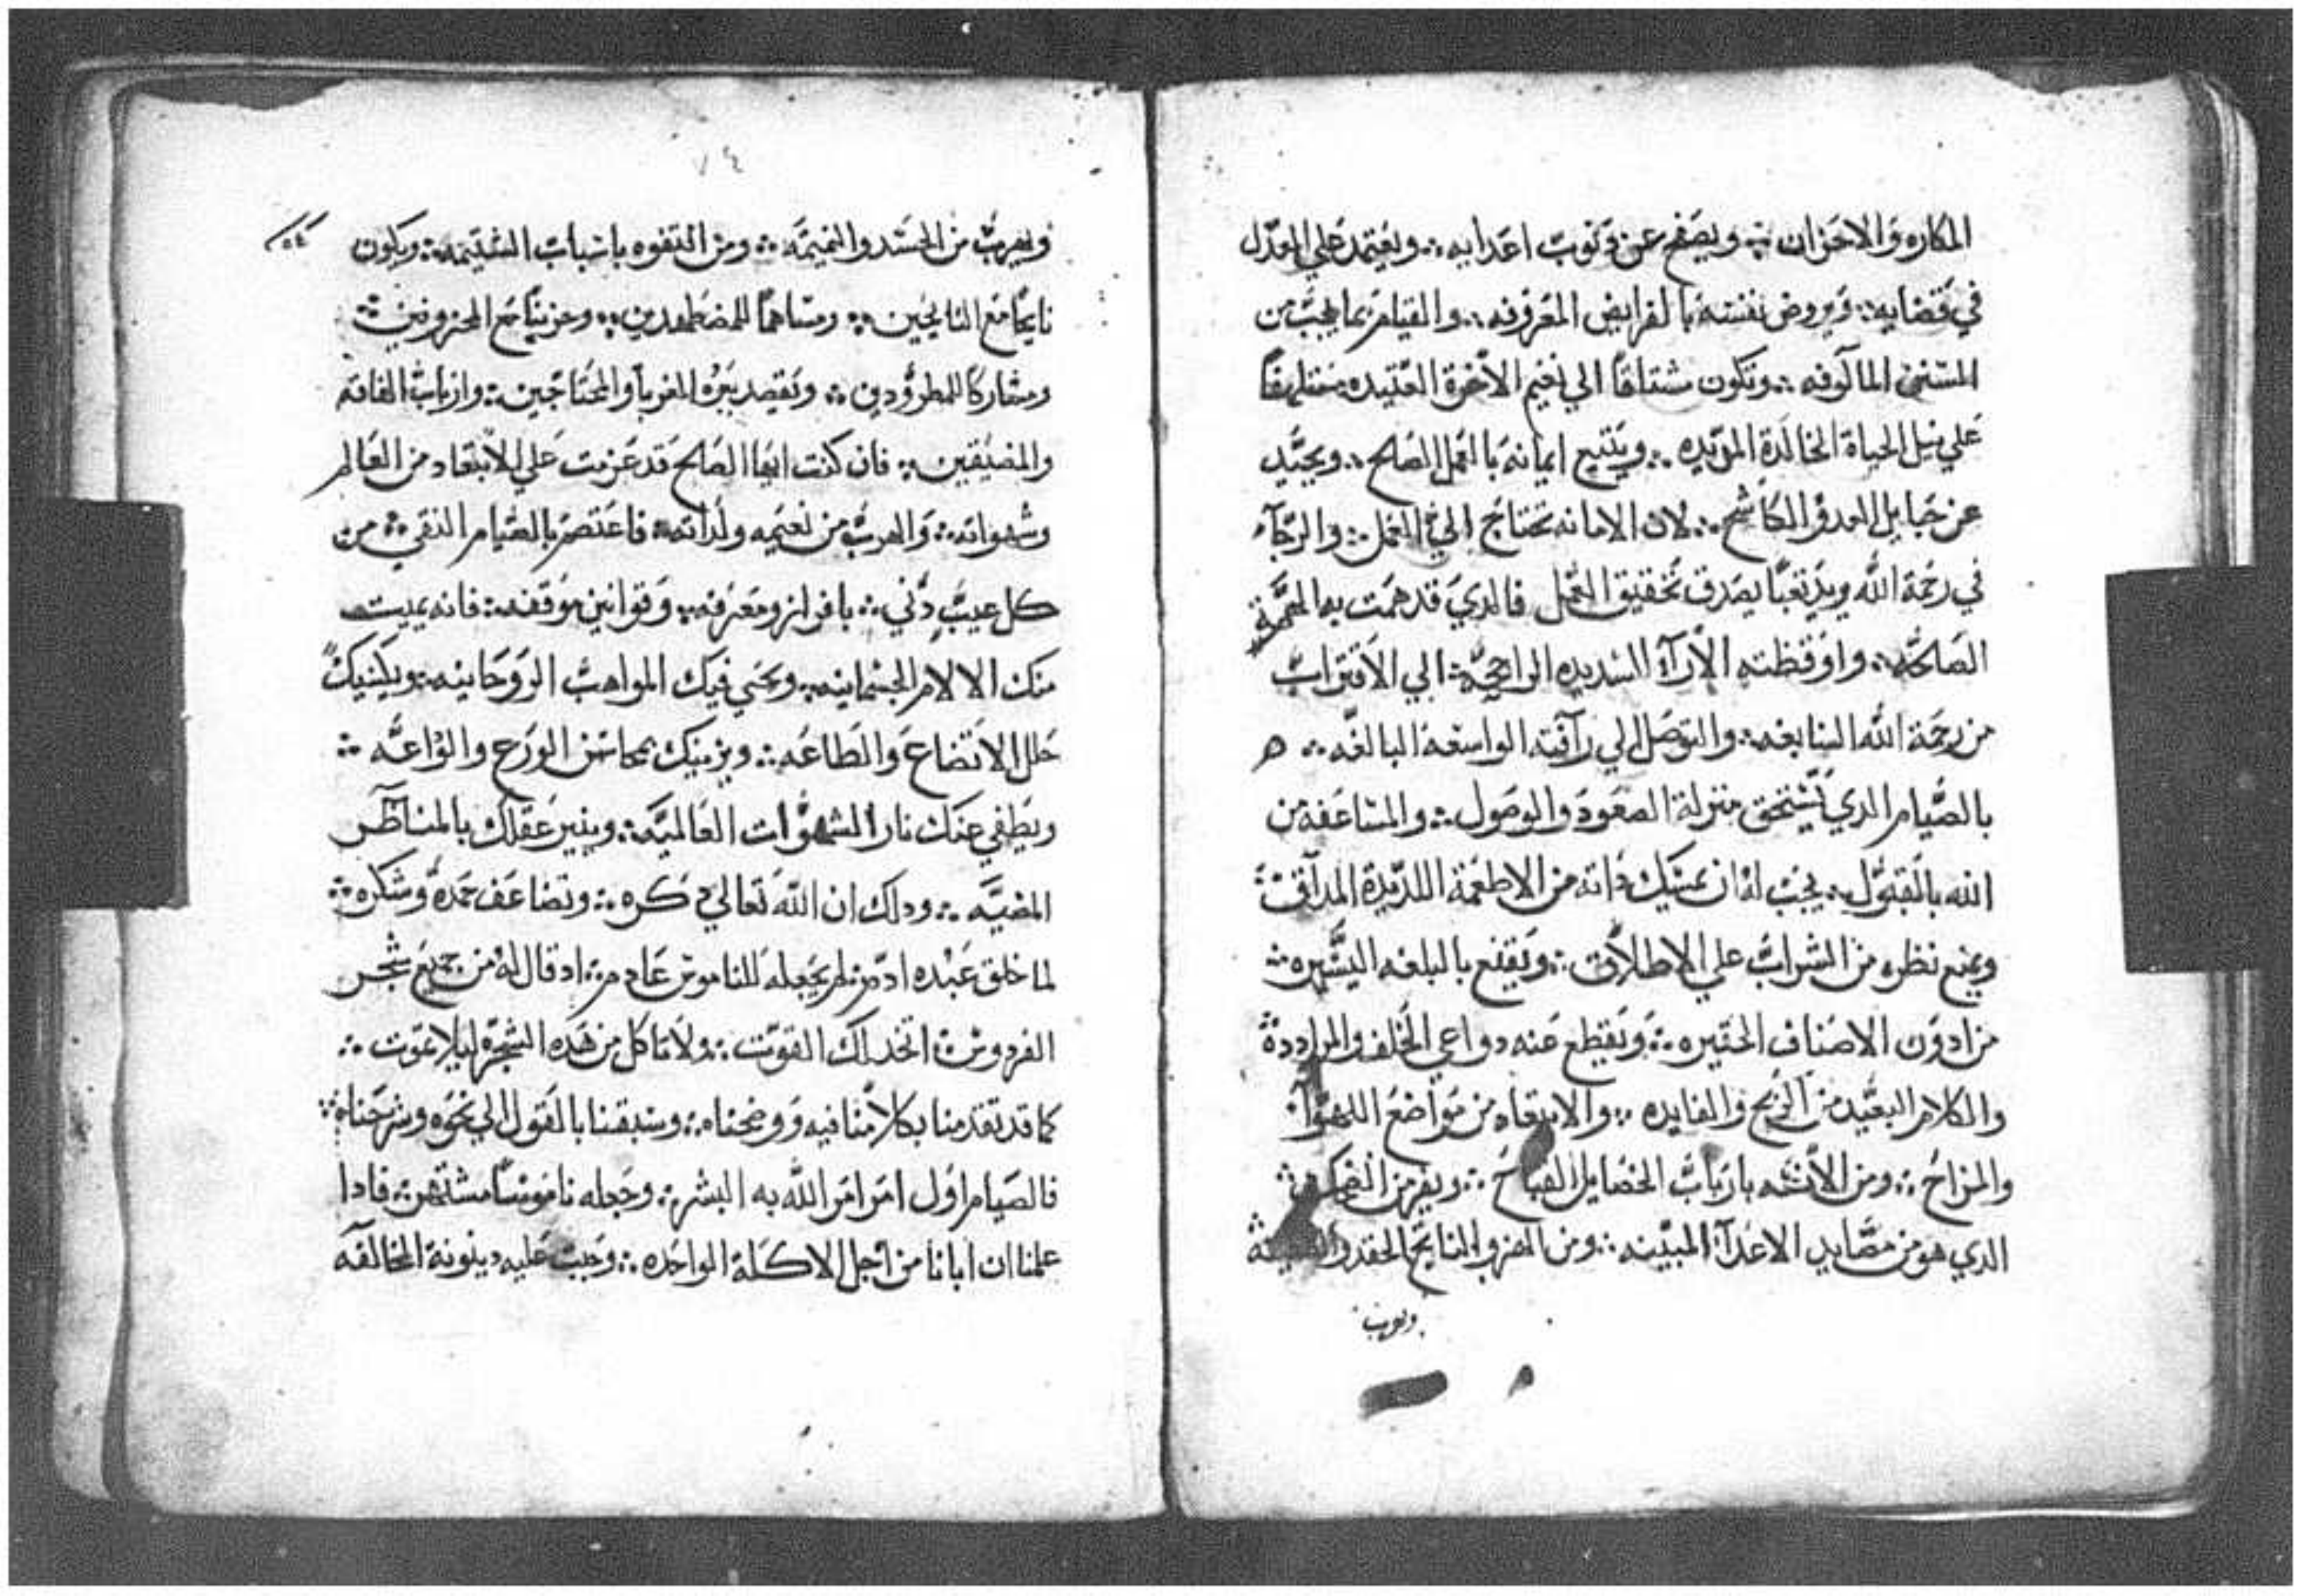 المكاره والاحزان ⁘ ويصفح عن ذنوب اعدايه ⁘ ويعتمد علي العدل
في قضايه ⁘ ويروض نفسه بالفرايض المعروفه ⁘ والقيام بما يجب من
السنن المالوفه ⁘ وتكون مشتاقا الي نعيم الاخرة العتيده متلهفا
علي نيل الحياة الخالدة الموبده ⁘ ويتبع ايمانه بالعمل الصالح ⁘ ويحيد
عن حبايل العدو الكاشح ⁘ لان الامانه تحتاج الي العمل ⁘ والرجآء
في رحمة الله يريد تعبا يصدق تحقيق العمل فالدي قد همت به الهمة
الصالحه ⁘ واوقظته الارآء السديده الراجحه ⁘ الي الاقتراب
من رحمة الله السابغه ⁘ والتوصل الي رآفته الواسعة البالغه ⁘ ه
بالصيام الدي يستحق منزلة الصعود والوصول ⁘ والمساعفه من
الله بالقبول ⁘ يجب له ان يمسك داته من الاطعمة اللديدة المداقة
ويمنع نظره من الشراب علي الاطلاق ⁘ ويقنع بالبلغه اليسيره ⁘
من ادون الاصناف الحقيره ⁘ ويقطع عنه دواعي الخلف والمراددة
والكلام البعيد من الربح والفايده ⁘ والابتعاد من مواضع اللهوآ
والمزاح ⁘ ومن بارباب الخصايل القباح ⁘ ويفر من الضحك ⁘
الدي هو من مصايد الاعدآ المبينه ⁘ ومن الهزو الناتج الحقد
ويهرب
٧٤
٥٤
ويهرب من الحسد والنميمه ⁘ ومن التفوه باسباب الشتيمه ⁘ ويكون
نايحا مع النايحين ⁘ ومساهما للمضطهدين ⁘ وحزينا مع المحزونين ⁘
ومشاركا للمطرودين ⁘ ويقصد ببره الغربآ والمحتاجين ⁘ وارباب الفاقه
والمضيقين ⁘ فان كنت ايها الصالح قد عزمت علي الابتعاد من العالم
وشهواته ⁘ والهرب من نعيمه ولداته ⁘ فاعتصم بالصيام النقي ⁘ من
كل عيب دني ⁘ بافراز ومعرفه ⁘ وقوانين موقفه ⁘ فانه يميت
منك الالام الجسمانيه ⁘ ويحيي فيك المواهب الروحانيه ⁘ ويكسيك
حلل الاتضاع والطاعه ⁘ ويزينك بمحاسن الورع والوداعه ⁘
ويطفي عنك نار الشهوات العالميه ⁘ وينير عقلك بالمناظر
المضيه ⁘ ودلك ان الله تعالي دكره ⁘ وتضاعف حمده وشكره ⁘
لما خلق عبده ادم ⁘ لم يجعله للناموس عادم ⁘ اد قال له من جميع شجر
الفردوس ⁘ اتخد لك القوت ⁘ ولا تاكل من هده الشجره ليلا تموت ⁘
كما قد تقدمنا بكلامنا فيه ووضحناه ⁘ وسبقنا بالقول الي نحوه وشرحناه ⁘
فالصيام اول امر امر الله به البشر ⁘ وجعله ناموسا مشتهر ⁘ فادا
علمنا ان ابانا من اجل الاكلة الواحده ⁘ وجبت عليه دينونة المخالفه